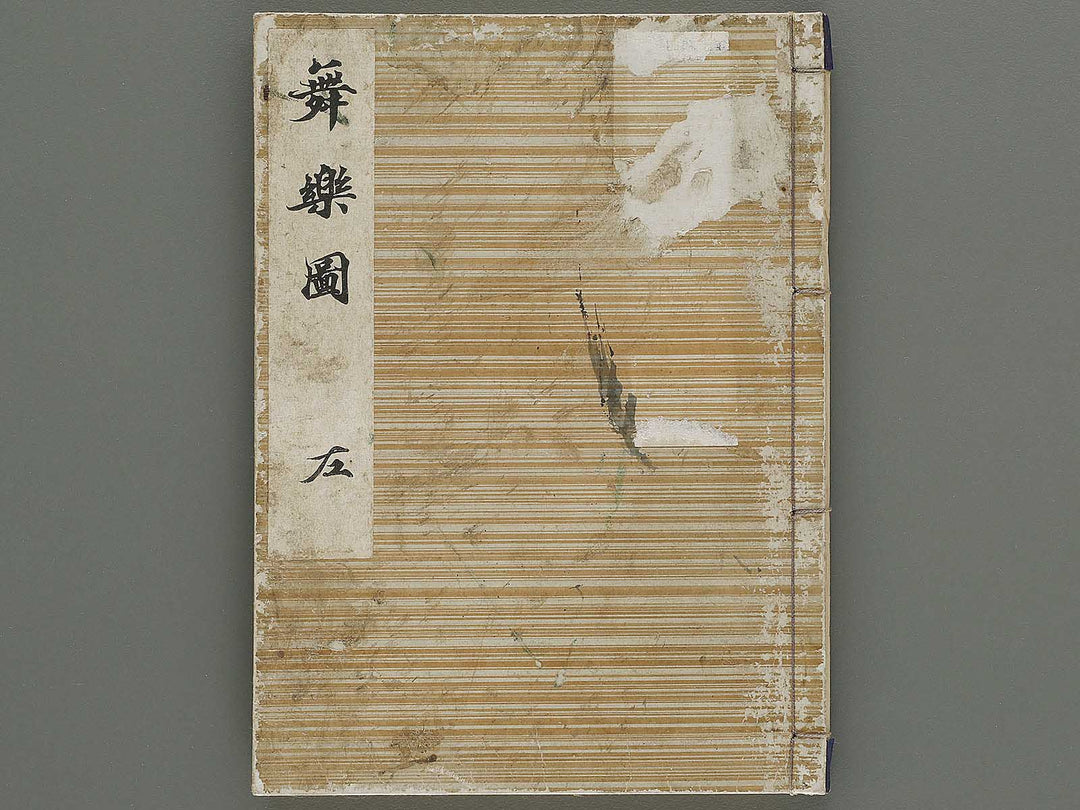 舞樂圖 左